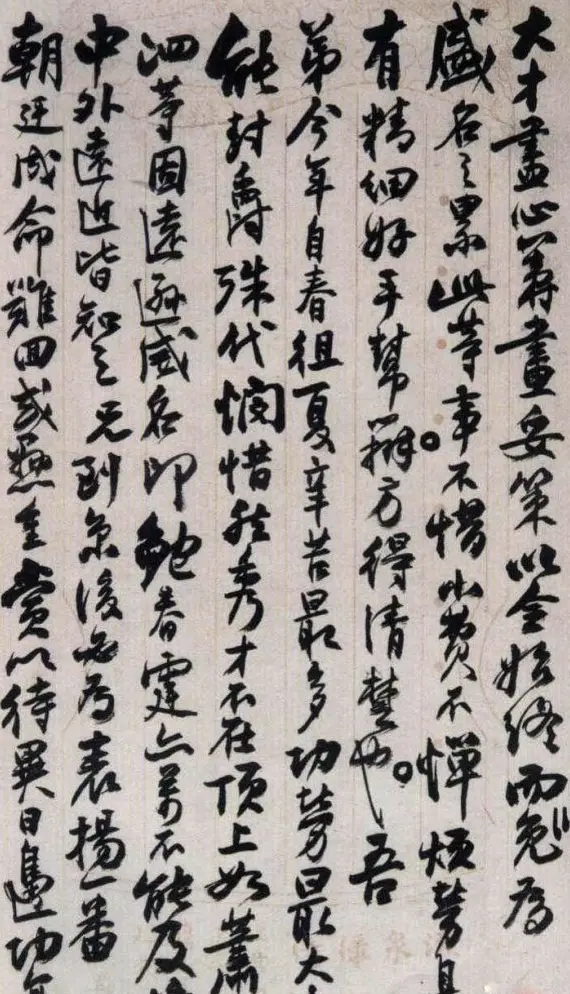 大才盡心籌畫妥策以全始終而免為
盛名之累此等事不惜小費不憚煩勞自
有精細好手幫辦方得清楚也吾
弟今年自春徂夏辛苦最多功勞最大
能封爵殊代憫惜然秀才不在頂上如蕭
泗等固遠遜威名即鮑春霆亦萬不能及
中外遠近皆知之兄到京後必為表揚一番
朝廷成命難回或懸重賞以待異日邊功